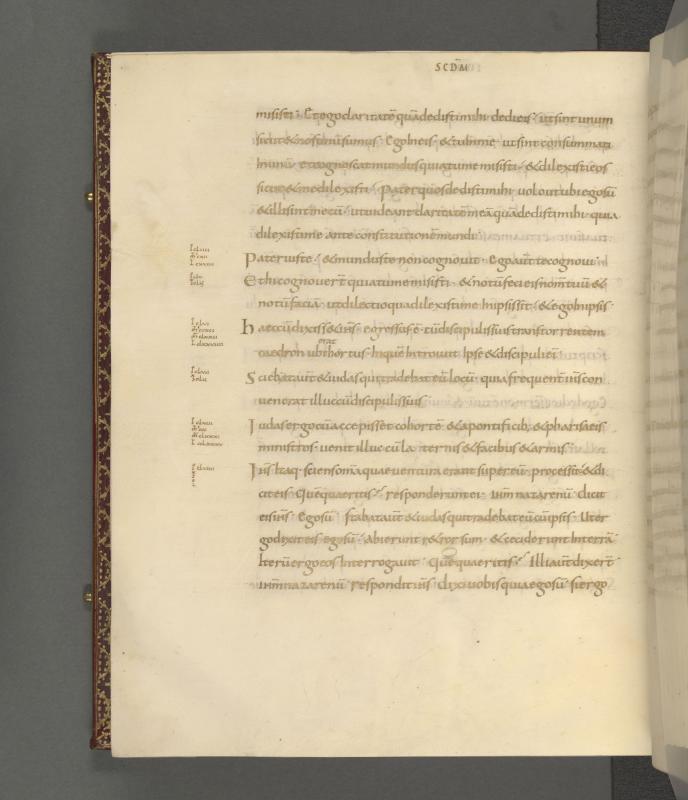 SCDM̄
misisti · Et ego claritatē quā dedisti mihi dedi eis · ut sint unum
sicut & nos unū sumus · Ego in eis · & tu in me · ut sint consummati
In unū · et cognoscat mundus quia tu me misisti · & dilexisti eos
sicut & me dilexisti · Pater quos dedisti mihi uolo ut ubi ego sū
& illi sint mecū · ut uideant claritatē meā quā dedisti mihi · quia
dilexisti me ante constitutionē mundi ·
Pater iuste · & mundus te non cognouit · Ego aut̄ te cognoui ·
Et hi cognouer̄t quia tu me misisti · & notū feci eis nom̄ tuū &
notū faciā · ut dilectio qua dilexisti me In ipsis sit · & ego In ipsis
haec cū dixiss& ih̄s · egressus · ē · cū discipulis suis trans torrentem
cedron ubi erat hortus · In quē Introiuit Ipse & discipuli ei ·
Sciebat aut̄ & iudas qui tradebat eū locū · quia frequent̄ ih̄s con
uenerat illuc cū discipulis suis ·
Iudas ergo cū accepiss& cohortē · & a pontificib; & pharisaeis
ministros · uenit illuc cū la ternis & facibus & armis ·
Ih̄s Itaq; sciens om̄a quae uentura erant super eū · processit & di
cit eis · Quē quaeritis · responderunt ei · ih̄m nazarenū · dicit
eis ih̄s · Ego sū · stabat aut̄ & iudas qui tradebat eū cū ipsis · Ut er
go dixit eis ego sū · abierunt r&rorsum · & ceciderunt In terrā
Iterū ergo eos Interrogauit · Quē quaeritis · Illi aut̄ dixer̄t
ih̄m nazarenū respondit ih̄s · dixi uobis quia ego sū · si ergo